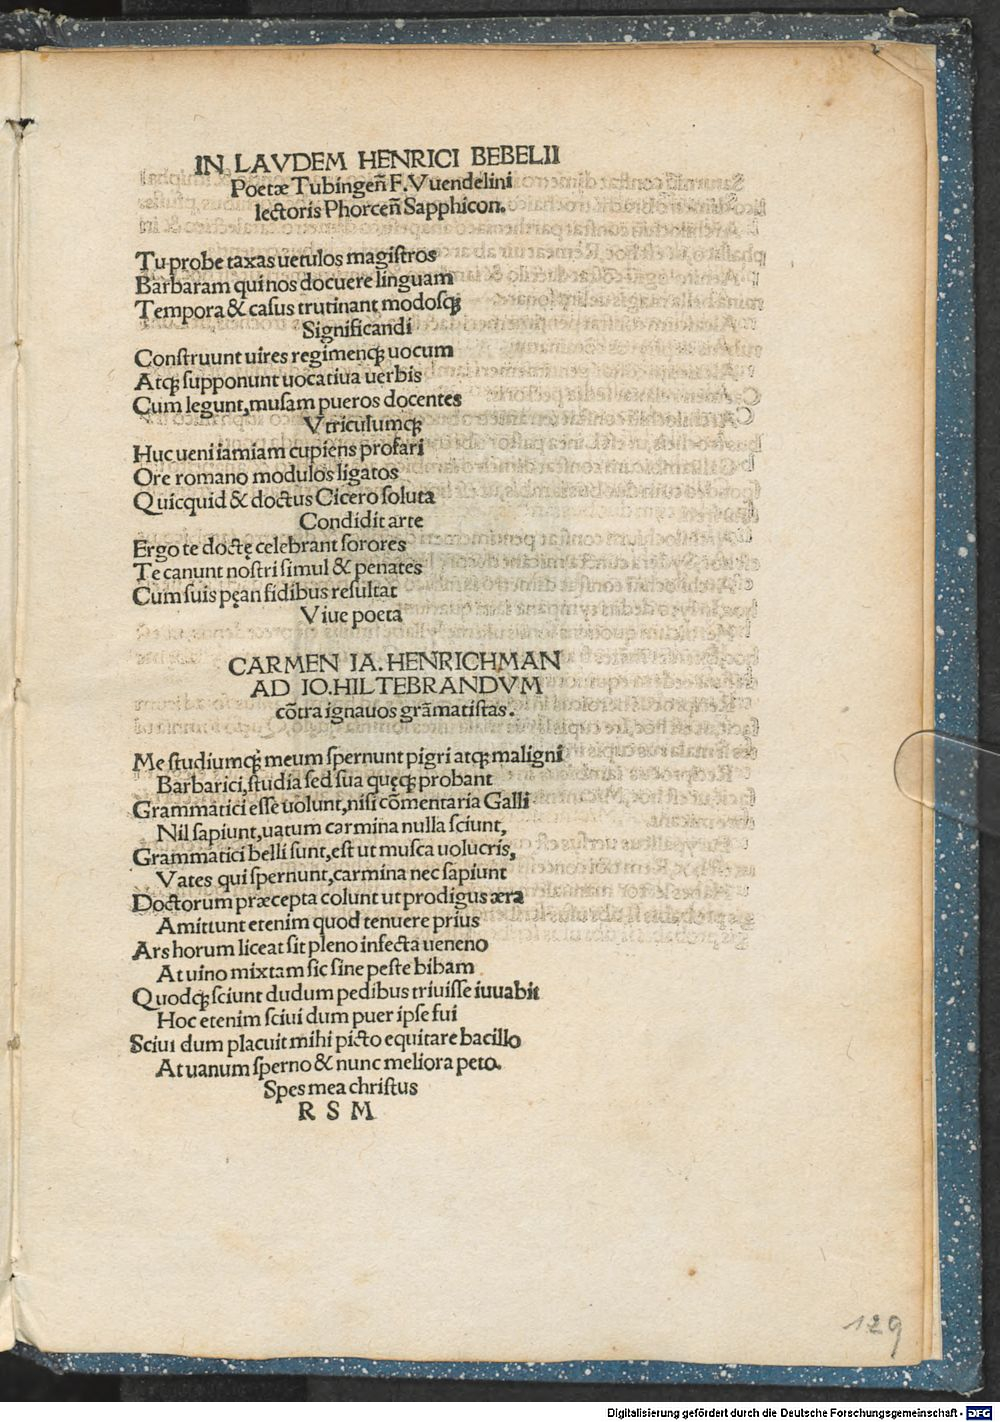 IN LAVDEM HENRICI BEBELII
Poetæ Tubingen̄ F. Vuendelini
lectoris Phorcen̄ Sapphicon.
Tu probe taxas uetulos magiſtros
Barbaram qui nos docuere linguam
Tempora & caſus trutinant modoſqꝫ
Significandi
Conſtruunt uires regimenqꝫ uocum
Atqꝫ ſupponunt uocatiua uerbis
Cum legunt, muſam pueros docentes
Vtriculumqꝫ
Huc ueni iamiam cupiens profari
Ore romano modulos ligatos
Quicquid & doctus Cicero ſoluta
Condidit arte
Ergo te doctę celebrant ſorores
Te canunt noſtri ſimul & penates
Cum ſuis pęan fidibus reſultat
Viue poeta
CARMEN IA. HENRICHMAN
AD IO. HILTEBRANDVM
cōtra ignauos grāmatiſtas.
Me ſtudiumqꝫ meum ſpernunt pigri atqꝫ maligni
Barbarici, ſtudia ſed ſua quęqꝫ probant
Grammatici eſſe uolunt, niſi cōmentaria Galli
Nil ſapiunt, uatum carmina nulla ſciunt,
Grammatici belli ſunt, eſt ut muſca uolucris,
Vates qui ſpernunt, carmina nec ſapiunt
Doctorum præcepta colunt ut prodigus æra
Amittunt etenim quod tenuere prius
Ars horum liceat ſit pleno infecta ueneno
At uino mixtam ſic ſine peſte bibam
Quodqꝫ ſciunt dudum pedibus triuiſſe iuuabit
Hoc etenim ſciui dum puer ipſe fui
Sciui dum placuit mihi picto equitare bacillo
At uanum ſperno & nunc meliora peto.
Spes mea chriſtus
R S M
129
Digitalisierung gefördert durch die Deutsche Forschungsgemeinschaft - DFG